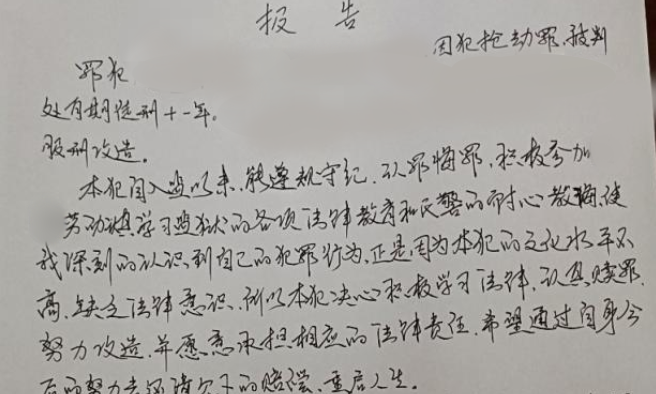 报告
因犯抢劫罪,被判
罪犯
处有期徒刑十一年。
服刑改造。
本犯自入监以来,能遵规守纪,认罪悔罪,积极参加
劳动,认真学习监狱的各项法律教育和民警的耐心教诲,使
我深刻的认识到自己的犯罪行为,正是因为本犯的文化水平不
高,缺乏法律意识,所以本犯决心积极学习法律,认真赎罪,
努力改造,并愿意承担相应的法律责任,希望通过自身今
后的努力去还清欠下的赔偿,重启人生。